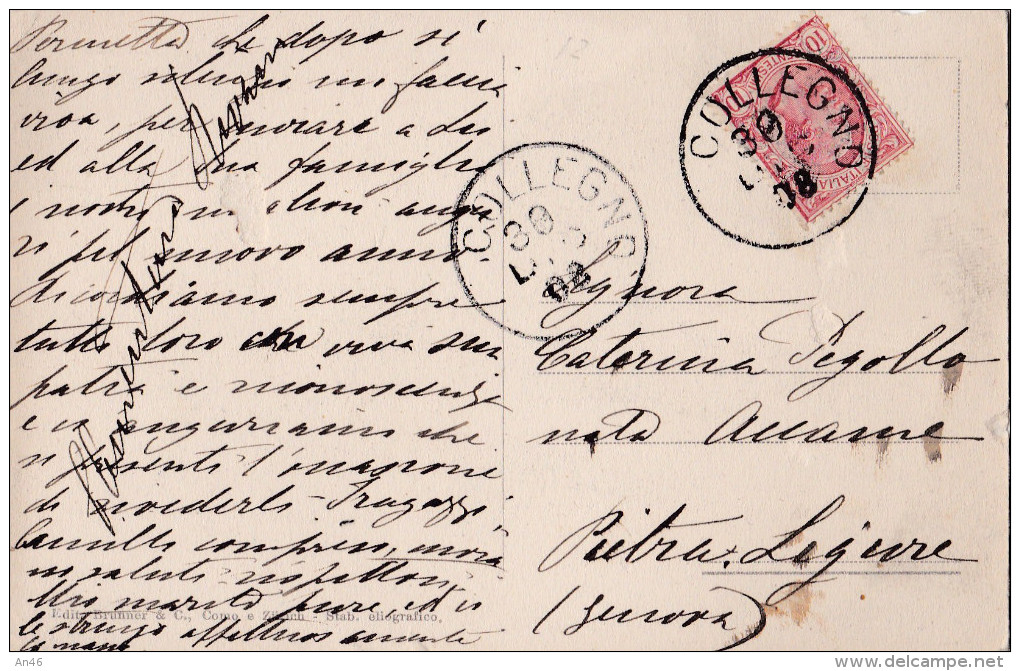 Permetta che dopo sì
lungo silenzio mi faccia
viva, per inviare a Lei
ed alla sua famiglia
i nostri augu
ri pel nuovo anno.
Ricordiamo sempre
tutti loro con viva sim
patia e riconoscenza
e ci auguriamo che
si presenti l'occasione
di rivederli - I ragazzi
Camillo compreso,
saluti rispettosi
Mio marito pure, ed io
le stringo affettuosamente
la mano
Edit. Brunner & C., Como e Zürich - Stab. eliografico.
COLLEGNO
30
08
COLLEGNO
30
08
10
ITALIA
12
Signora
Caterina Pegollo
nata Accame
Pietra Ligure
(Genova)
An46
delcampe.net